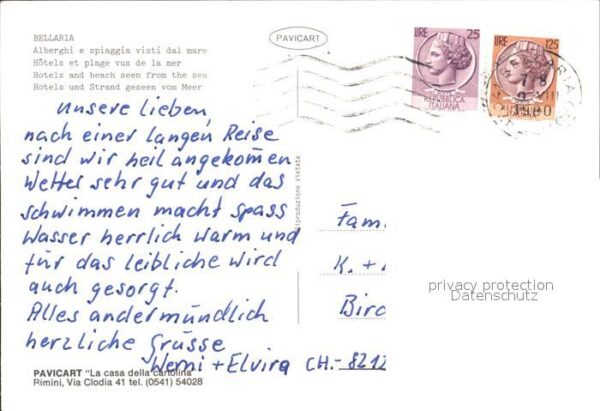 BELLARIA
Alberghi e spiaggia visti dal mare
Hôtels et plage vus de la mer
Hotels and beach seen from the sea
Hotels und Strand geseen vom Meer
PAVICART
LIRE 25
REPUBBLICA ITALIANA
LIRE 125
1980
unsere lieben,
nach einer langen Reise
sind wir heil angekommen
Wetter sehr gut und das
schwimmen macht spass
Wasser herrlich warm und
für das leibliche wird
auch gesorgt.
Alles andermündlich
herzliche Grüsse
Werni + Elvira
riproduzione vietata
Fam.
K. +
Birc
CH.- 8212
privacy protection
Datenschutz
PAVICART "La casa della cartolina"
Rimini, Via Clodia 41 tel. (0541) 54028